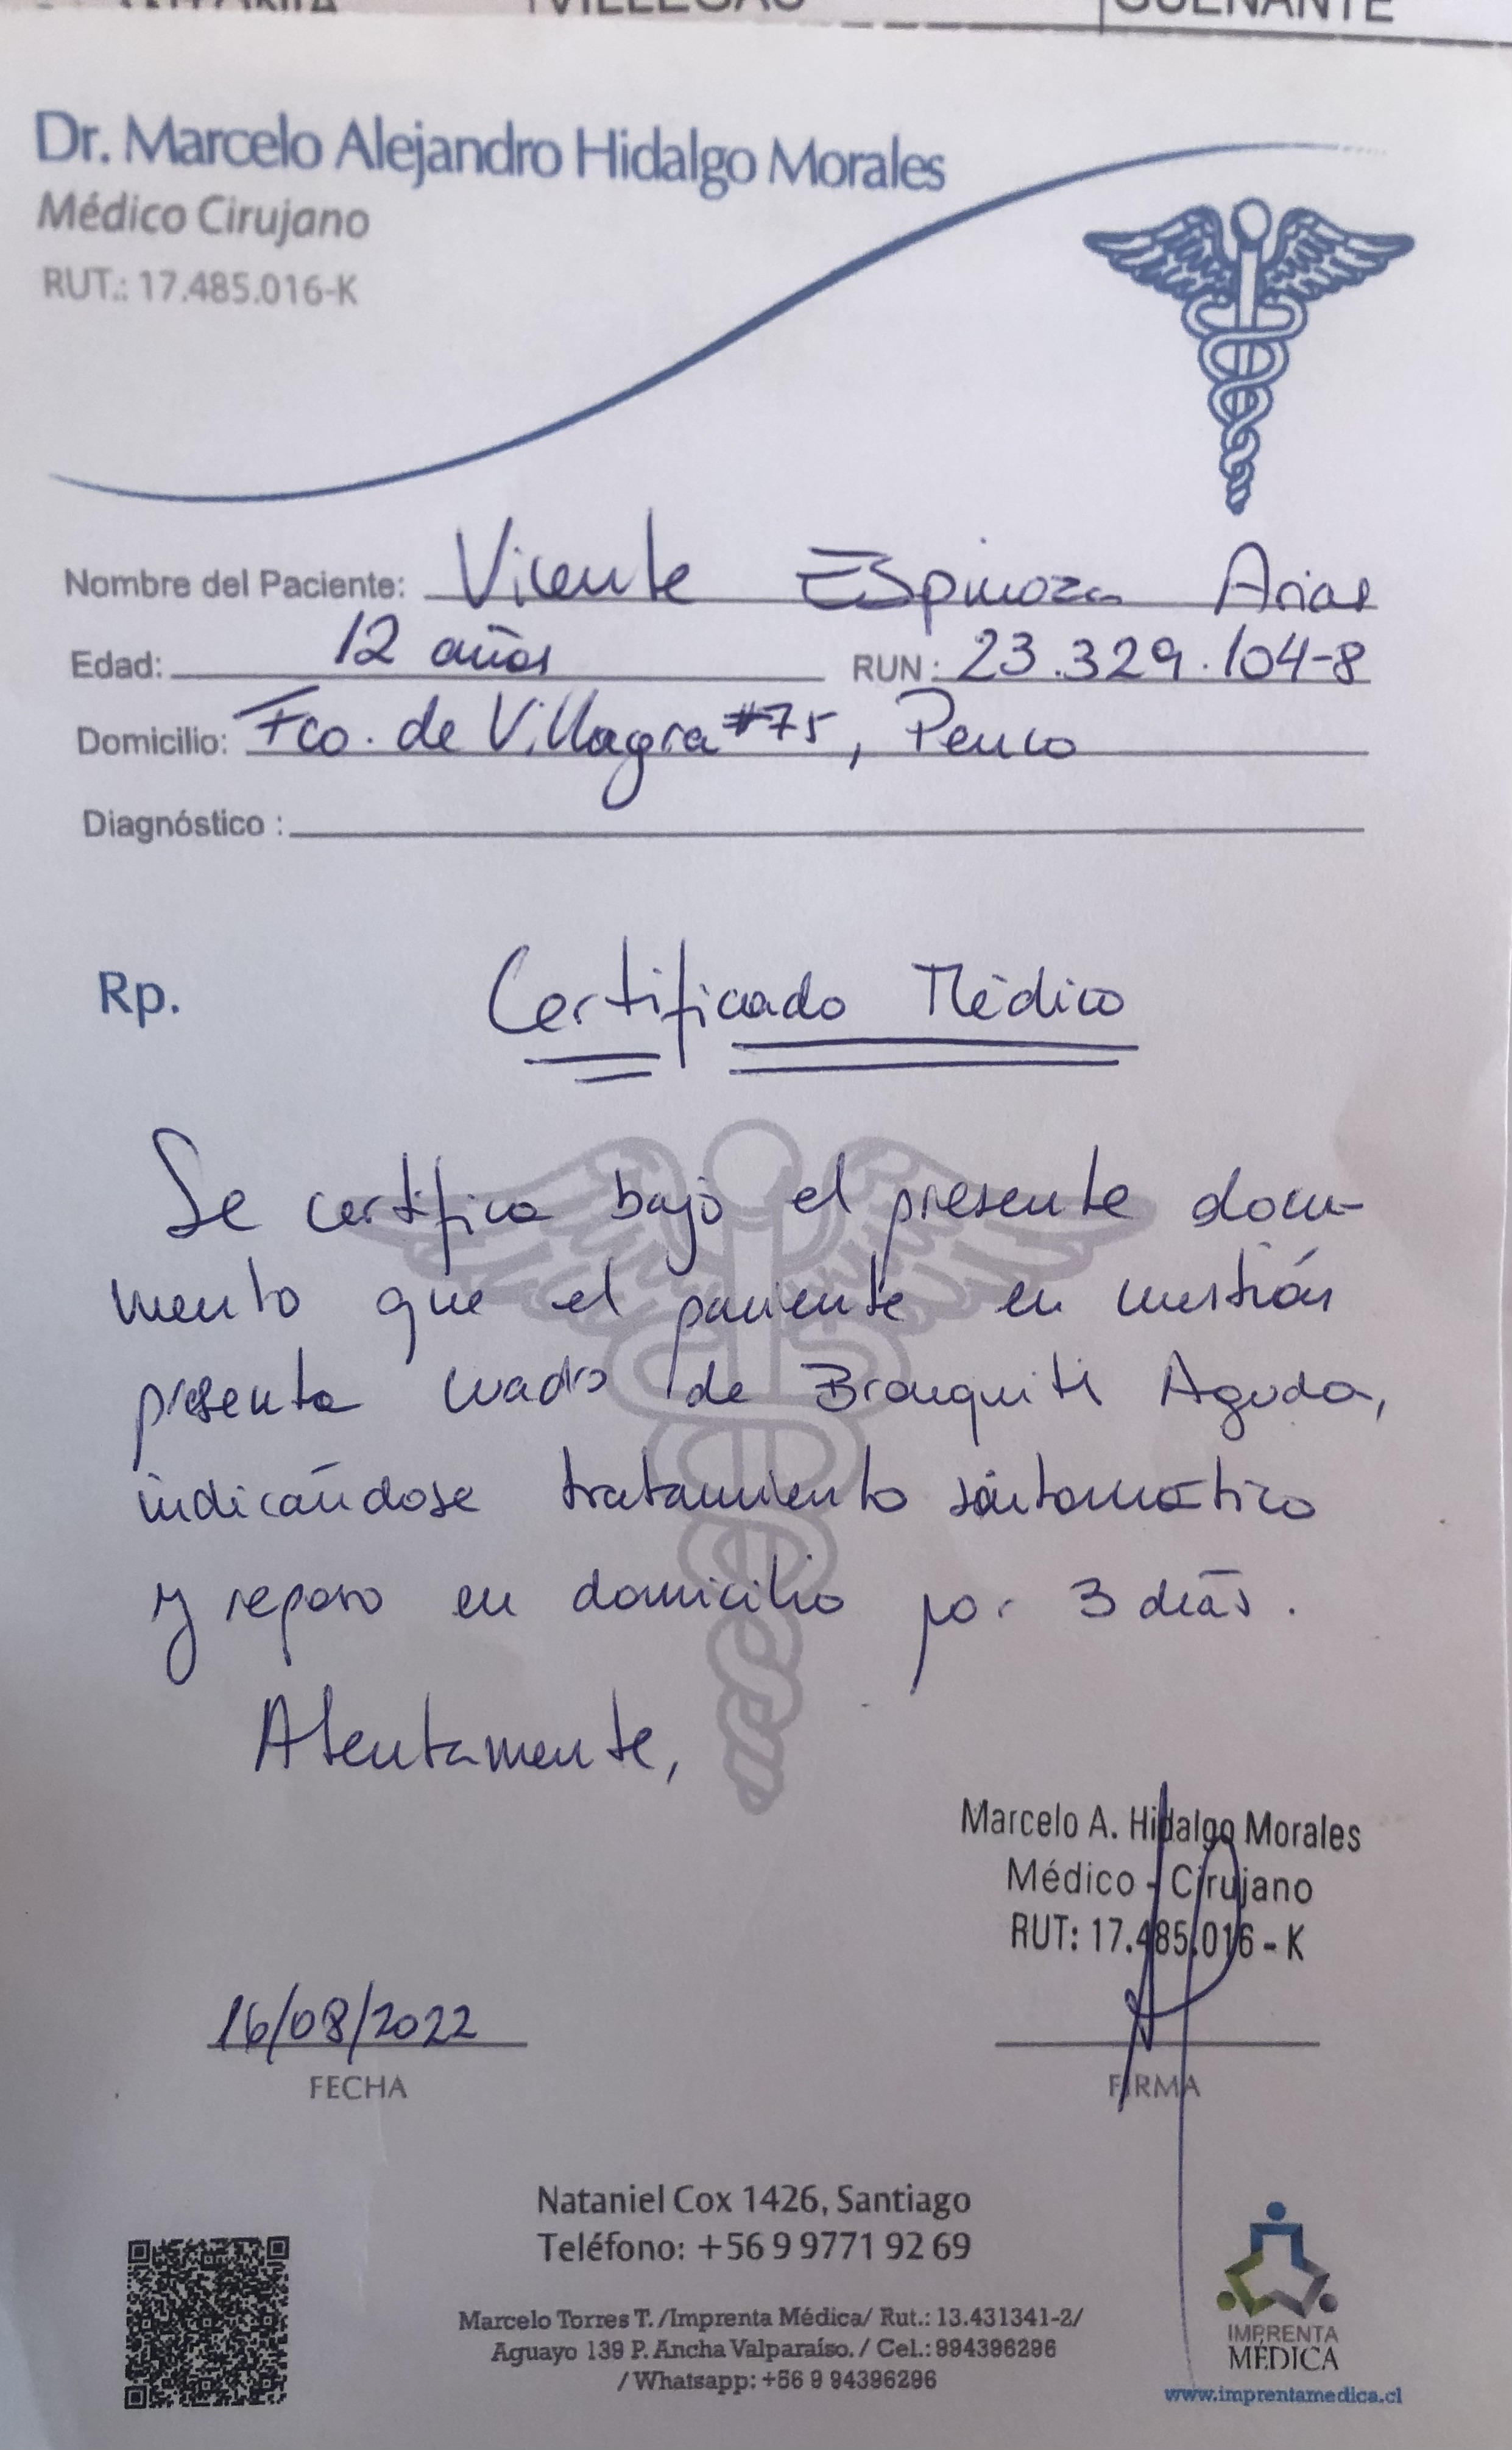 VILLEGAS
Dr. Marcelo Alejandro Hidalgo Morales
Médico Cirujano
RUT.: 17.485.016-K
Nombre del Paciente: Vicente Espinoza Arias
Edad: 12 años RUN: 23.329.104-8
Domicilio: Fco. de Villagra #75, Penco
Diagnóstico :
Rp. Certificado Médico
Se certifica bajo el presente docu-
mento que el paciente en cuestión
presenta cuadro de Bronquiti Aguda,
indicándose tratamiento sintomático
y reposo en domicilio por 3 días.
Atentamente,
Marcelo A. Hidalgo Morales
Médico - Cirujano
RUT: 17.485.016 - K
16/08/2022
FECHA FIRMA
Nataniel Cox 1426, Santiago
Teléfono: +56 9 9771 92 69
Marcelo Torres T. /Imprenta Médica/ Rut.: 13.431341-2/
Aguayo 139 P. Ancha Valparaíso. / Cel.: 994396296
/ Whatsapp: +56 9 94396296
IMPRENTA
MÉDICA
www.imprentamedica.cl